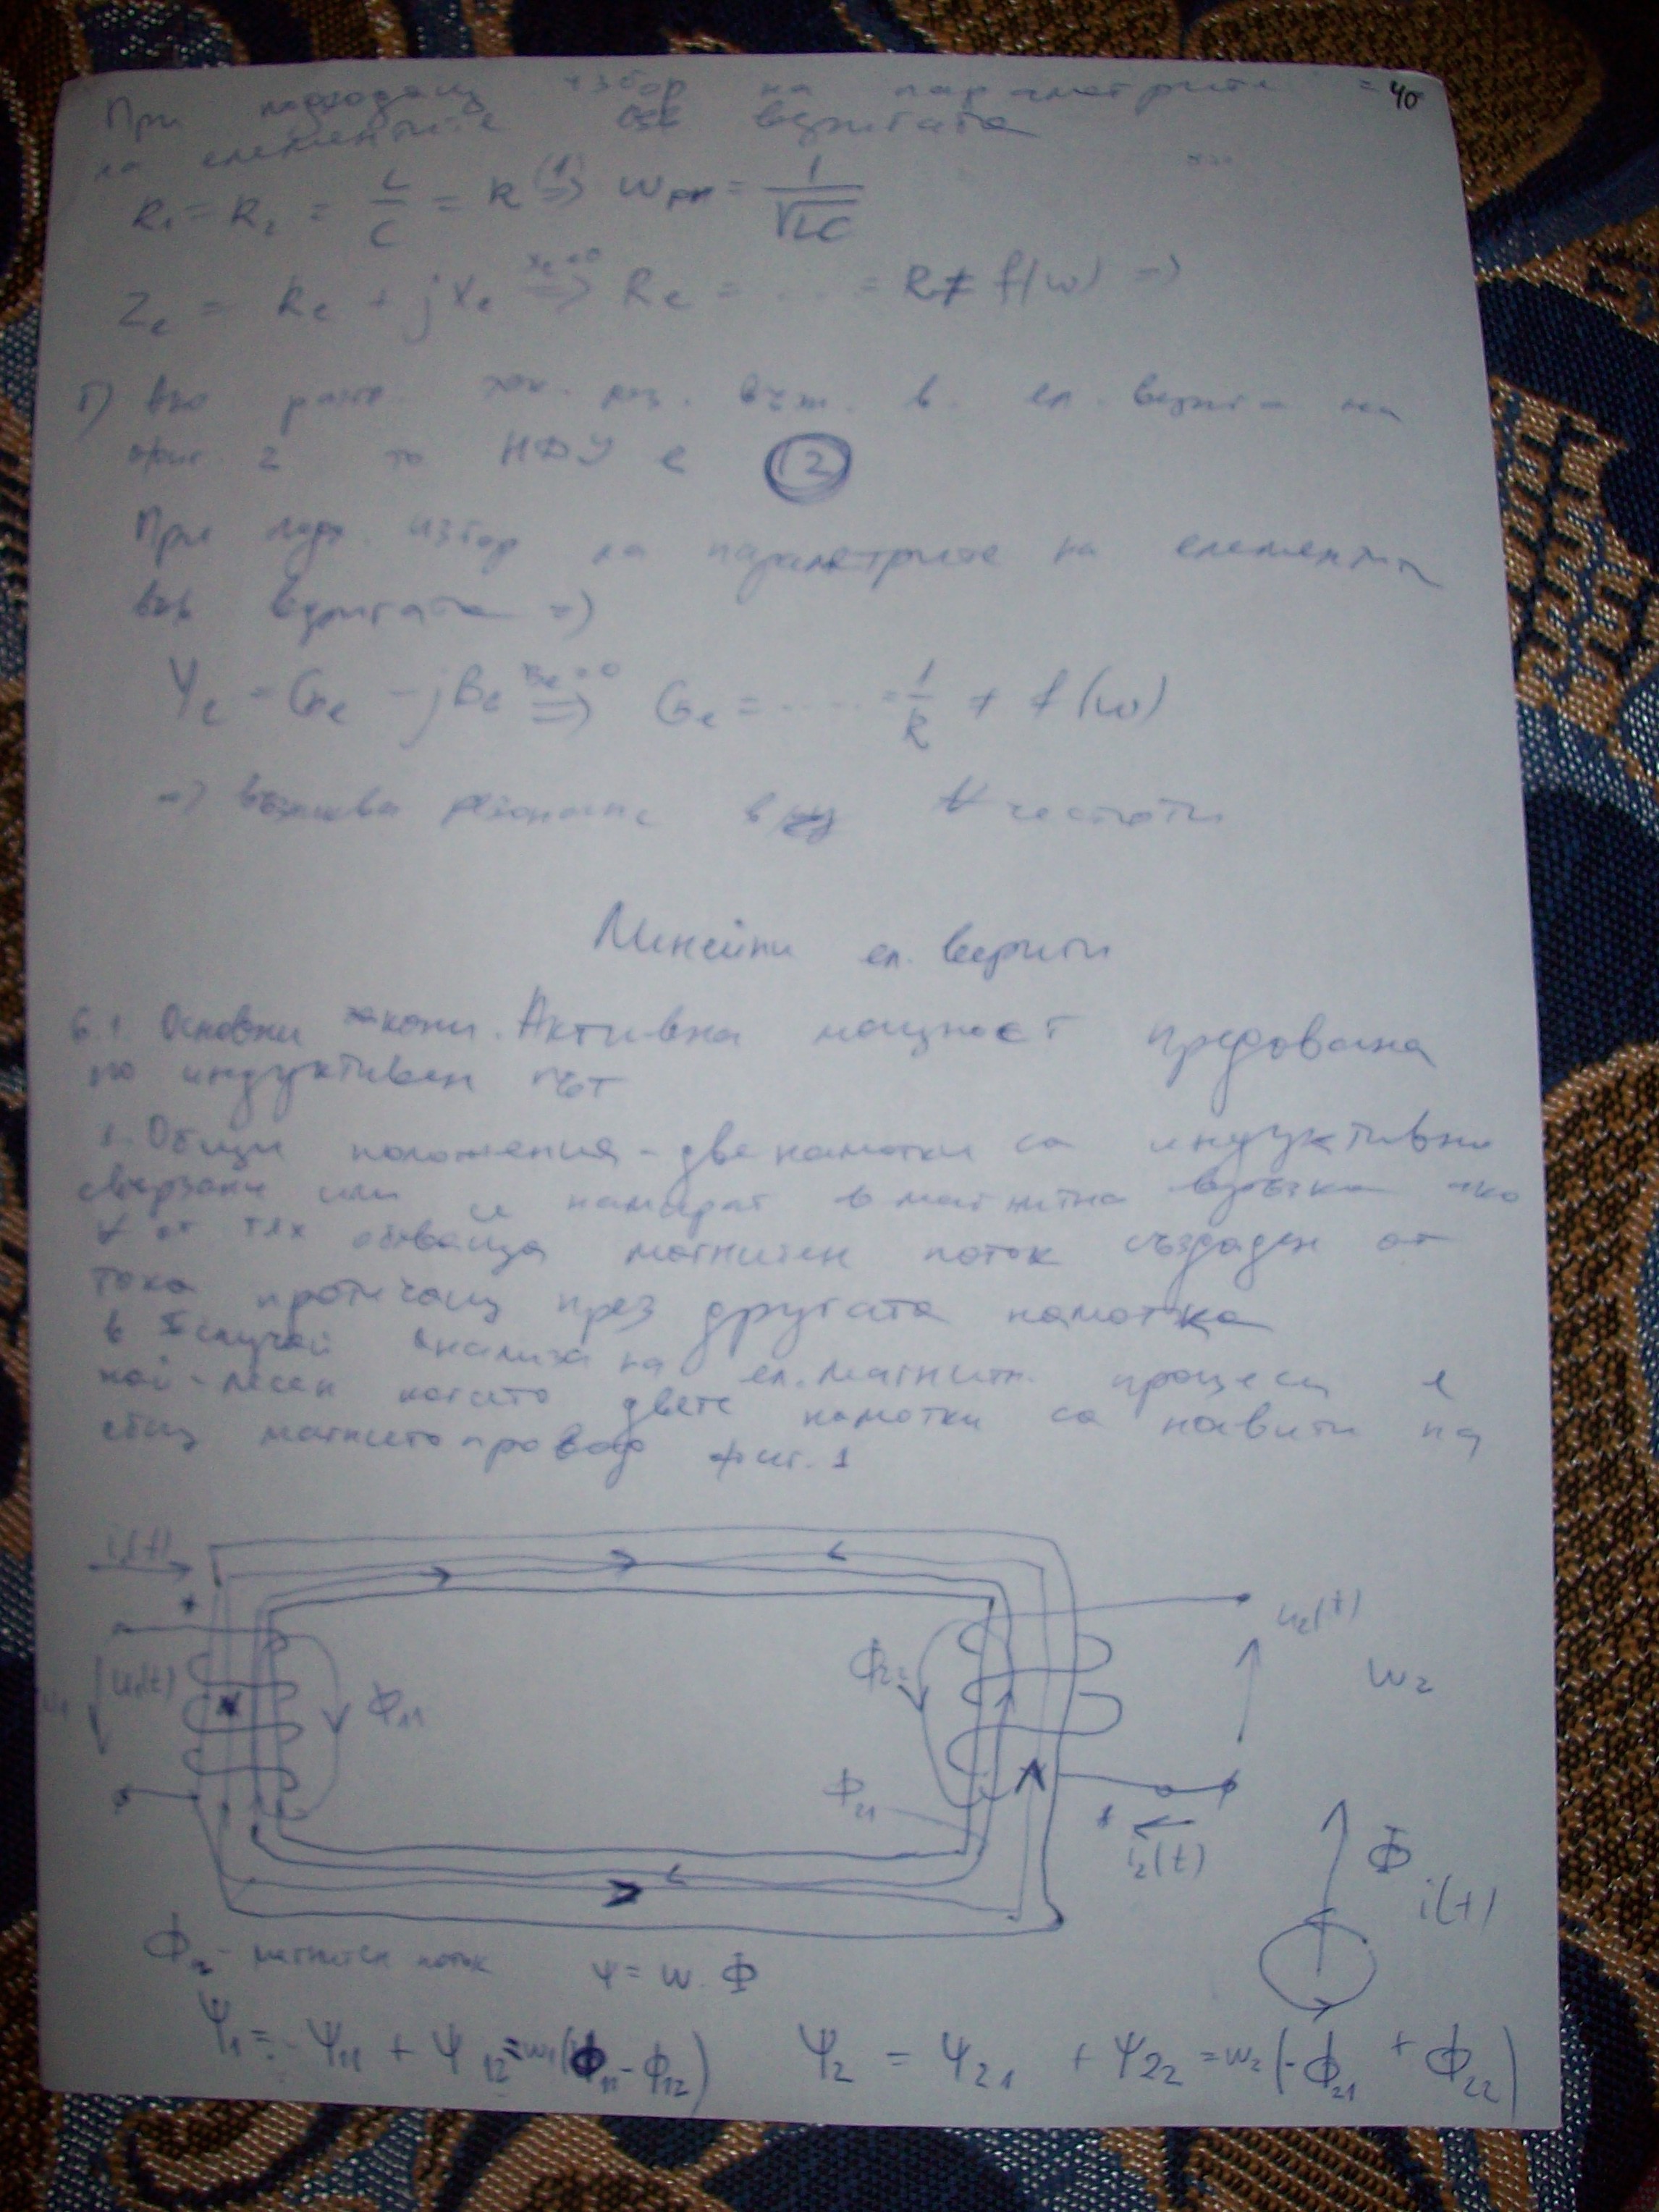 40
При подходящ избор на параметрите
на елементите във веригата
R₁ = R₂ = L/C = R (1)⇒ ωрп = 1/√LC
Zе = Rе + jXе Xе=0⇒ Rе = .... = R ≠ f(ω) ⇒
Г) Ако в ел. верига на
фиг. 2 то НДУ е (2)
При подх. избор на параметрите на елементи
във веригата ⇒
Yе = Gе - jBе Bе=0⇒ Gе = ..... = 1/R ≠ f(ω)
⇒ възниква резонанс ∀ честоти
Линейни ел. вериги
6.1. Основни закони. Активна мощност предавана
по индуктивен път
1. Общи положения - две намотки са индуктивно
свързани или се намират в магнитна връзка ако
∀ от тях обхваща магнитен поток създаден от
тока протичащ през другата намотка
в случай анализа на ел. магнитн. процеси е
най-лесен когато двете намотки са навити на
общ магнитопровод фиг. 1
i₁(t)
*
w₁ u₁(t) Φ₁₁
Φ₂₂ u₂(t) w₂
Φ₂₁
* i₂(t)
Φ i(t)
магнитен поток ψ = w . Φ
Ψ₁ = Ψ₁₁ + Ψ₁₂ = w₁(Φ₁₁ - Φ₁₂) Ψ₂ = Ψ₂₁ + Ψ₂₂ = w₂(-Φ₂₁ + Φ₂₂)